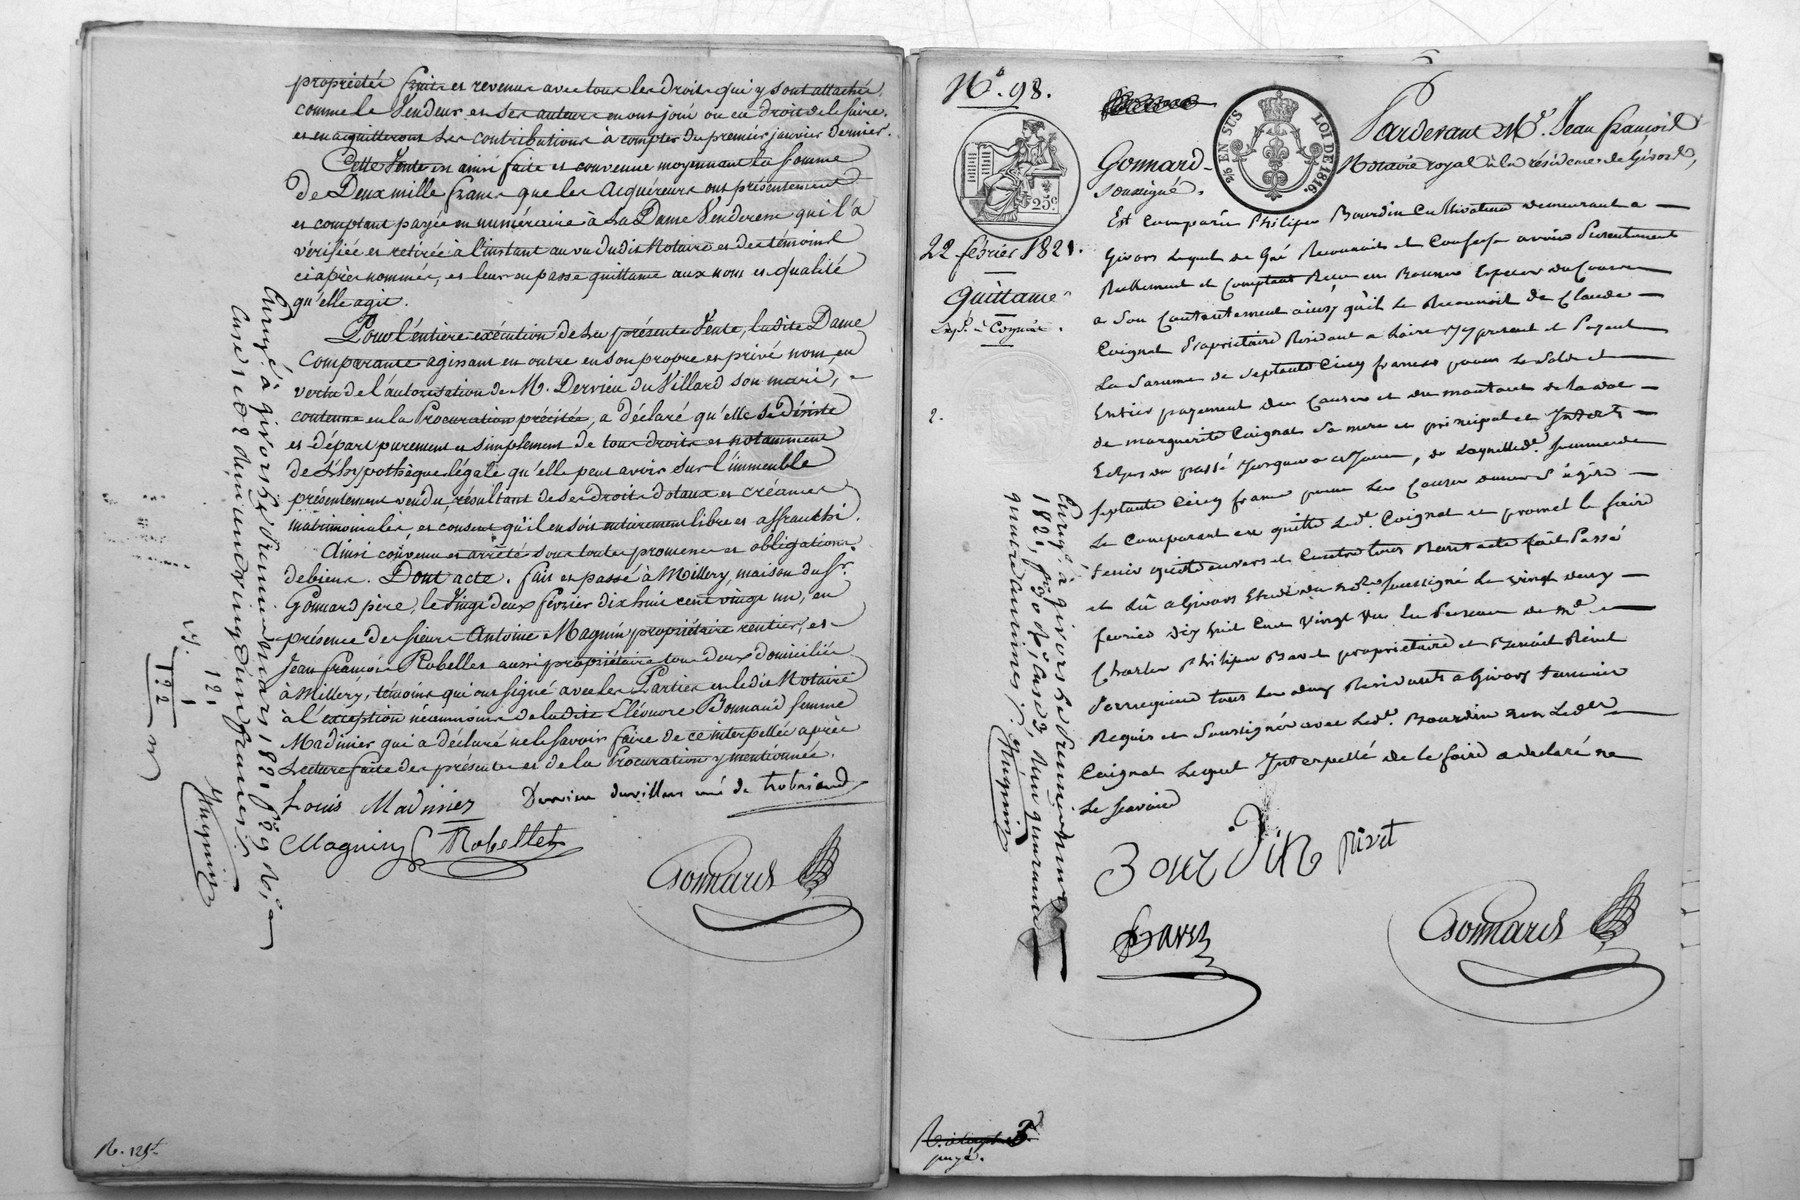 propriétés fruits et revenus avec tous les droits qui y sont attachés,
comme le Vendeur et ses auteurs en ont joui ou eu droit de le faire,
et en aquitteront les contributions à compter du premier janvier dernier.
Cette Vente est ainsi faite et convenue moyennant la somme
de Deux mille francs que les Acquéreurs ont présentement
et comptant payée en numéraire à la Dame Venderesse qui l'a
vérifiée et retirée à l'instant au vu dudit Notaire et des témoins
ci après nommés, et leur en passe quittance aux noms et qualité
qu'elle agit.
Pour l'entière exécution de la présente Vente, ladite Dame
Comparante agissant en outre en son propre et privé nom, en
vertu de l'autorisation de M. Dervieu du Villard son mari,
contenue en la Procuration précitée, a déclaré qu'elle se désiste
et départ purement et simplement de tous droits et notamment
de l'hypothèque légale qu'elle peut avoir sur l'immeuble
présentement vendu, résultant de ses droits dotaux et créances
matrimoniales, et consent qu'il en soit entièrement libre et affranchi.
Ainsi convenu et arrêté sous toutes promesses et obligations
de biens. Dont acte. fait et passé à Millery, maison du Sr.
Gonnard père, le Vingt deux février dix huit cent vingt un, en
présence de sieurs Antoine Magnin propriétaire rentier, et
Jean françois Robellet aussi propriétaire tous deux domiciliés
à Millery, témoins qui ont signé avec les Parties et ledit Notaire
à l'exception néanmoins de ladite Eléonore Bonnaud femme
Madinier qui a déclaré ne le savoir faire de ce interpellée après
Lecture faite des présentes et de la Procuration y mentionnée.
Louis Madinier Dervieu duvillars née de trobriand
Magnin Robellet
Gonnard
Enregé à givors le premier mars 1821, fo 29 Ro, ca
Case 1 et 2
R. 125
No. 98.
25c
25 EN SUS LOI DE 1816.
22 février 1821.
Quittance
Expé. à Coignat.
2.
Pardevant Me. Jean françois
Gonnard Notaire royal à la résidence de Givors,
soussigné.
Est comparu Philipe Bourdin Cultivateur demeurant a
Givors Lequel de Gré Reconnoit et Confesse avoir Presentement
Reellement et Comptant Reçu en Bonnes Especes du Cours
a Son Contentement ainsy qu'il le Reconnoit de Claude
Coignat Proprietaire Residant a Loire Icy present et Payant
La Somme de Septante Cinq francs pour Le Solde et
Entier payement des Causes et du montant de la dot
de marguerite Coignat Sa mere en principal et Interets
Echus du passé Jusques a ce Jour, de Laquelle de. Somme de
Septante Cinq francs pour Les Causes
Le Comparant en quitte Led. Coignat et promet Le faire
tenir quitte envers et Contre tous Dont acte fait Passé
et Lû a Givors Etude du Nre. Soussigné Le vingt deux
fevrier Dix huit Cent Vingt Un En Presence de
Charles Philipe Bavet proprietaire et Benoit Rivet
Perruquier tous Les deux Residants a Givors temoins
Requis et Soussignés avec Led. Bourdin non Ledit
Coignat Lequel Interpellé de le faire a declaré ne
Le Scavoir
Bourdin Rivet
Bavet
Gonnard
Enregé à givors le premier mars
1821, fo 30 Ro, Case 3, Reçu quarante
quatre centimes.
payé.